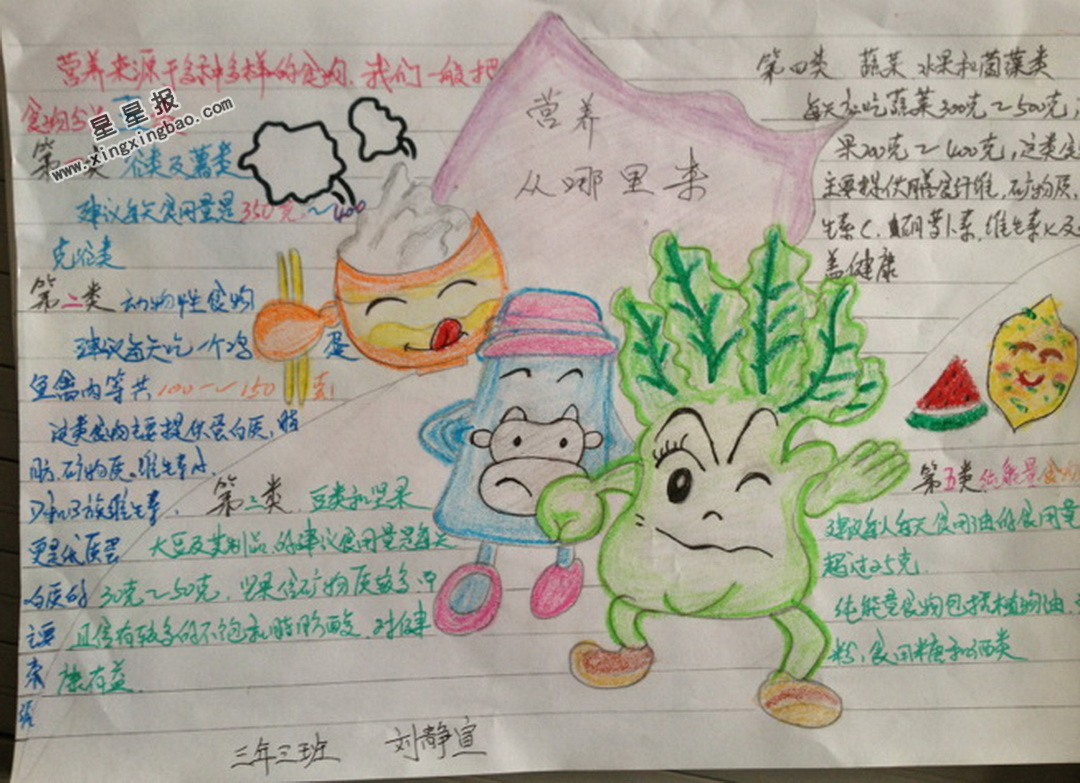 营养
从哪里来
营养来源于多种多样的食物,我们一般把
食物分
星星报
www.xingxingbao.com
第一类 谷类及薯类
建议每天食用量是350克~400
克谷类
第二类 动物性食物
建议每天吃一个鸡蛋
鱼禽肉等共100~150克
这类食物主要提供蛋白质,脂
肪,矿物质,维生素A,
和B族维生素,
更是优质蛋
白质的
主要
来
第三类 豆类和坚果
大豆及其制品的建议食用量是每天
30克~50克,坚果含矿物质较多,
且含有较多的不饱和脂肪酸 对健
康有益
第四类 蔬菜 水果和菌藻类
每天应吃蔬菜300克~500克,
果200克~400克,这类食
主要提供膳食纤维,矿物质,
生素C,胡萝卜素,维生素K及
益健康
第五类 纯能量食物
建议每人每天食用油的食用量
超过25克
纯能量食物包括植物油
粉,食用糖和酒类
三年三班 刘静宣